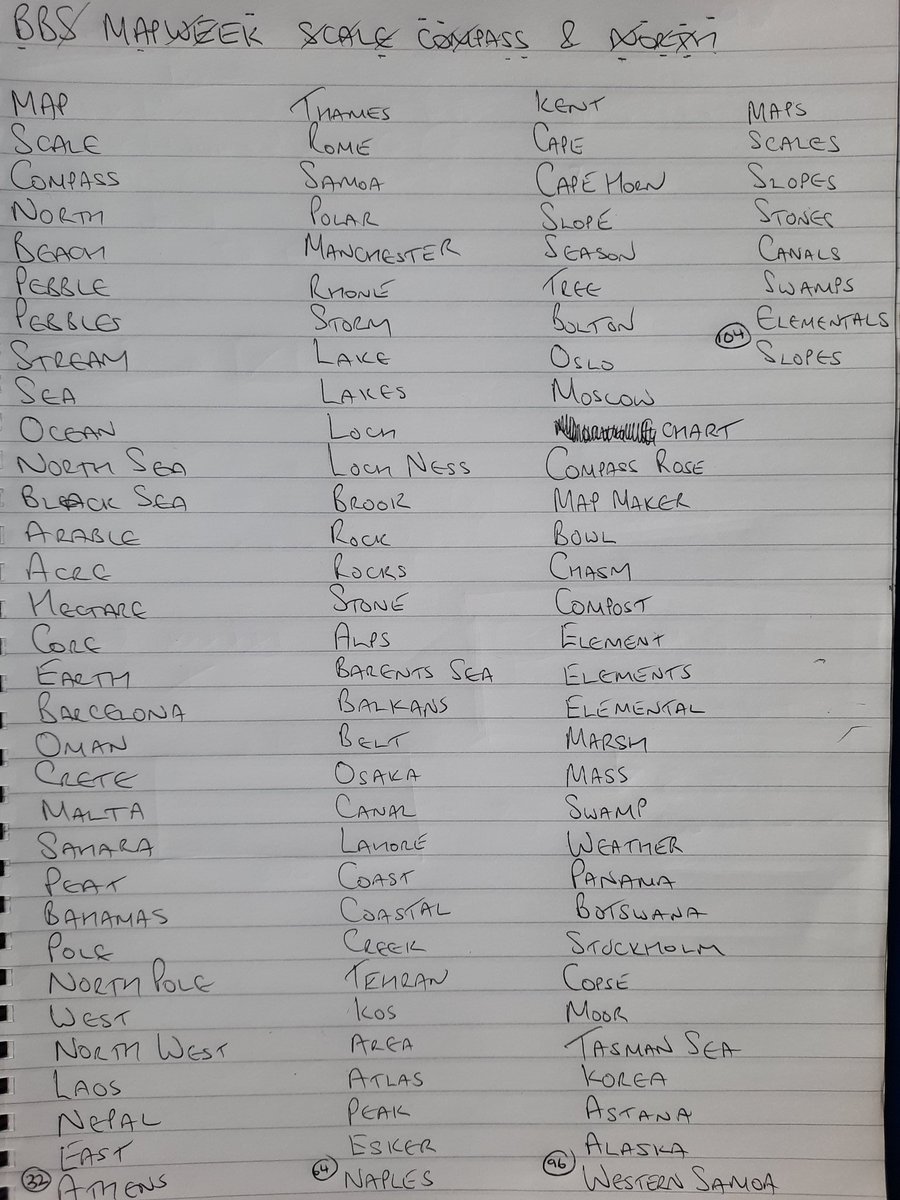 BBS MAPWEEK SCALE COMPASS & NORTH
MAP
SCALE
COMPASS
NORTH
BEACH
PEBBLE
PEBBLES
STREAM
SEA
OCEAN
NORTH SEA
BLACK SEA
ARABLE
ACRE
HECTARE
CORE
EARTH
BARCELONA
OMAN
CRETE
MALTA
SAHARA
PEAT
BAHAMAS
POLE
NORTH POLE
WEST
NORTH WEST
LAOS
NEPAL
EAST
32 ATHENS
THAMES
ROME
SAMOA
POLAR
MANCHESTER
RHONE
STORM
LAKE
LAKES
LOCH
LOCH NESS
BROOK
ROCK
ROCKS
STONE
ALPS
BARENTS SEA
BALKANS
BELT
OSAKA
CANAL
LAHORE
COAST
COASTAL
CREEK
TEHRAN
KOS
AREA
ATLAS
PEAK
ESKER
64 NAPLES
KENT
CAPE
CAPE HORN
SLOPE
SEASON
TREE
BOLTON
OSLO
MOSCOW
CHART
COMPASS ROSE
MAP MAKER
BOWL
CHASM
COMPOST
ELEMENT
ELEMENTS
ELEMENTAL
MARSH
MASS
SWAMP
WEATHER
PANAMA
BOTSWANA
STOCKHOLM
COPSE
MOOR
TASMAN SEA
KOREA
ASTANA
ALASKA
96 WESTERN SAMOA
MAPS
SCALES
SLOPES
STONES
CANALS
SWAMPS
ELEMENTALS
104 SLOPES